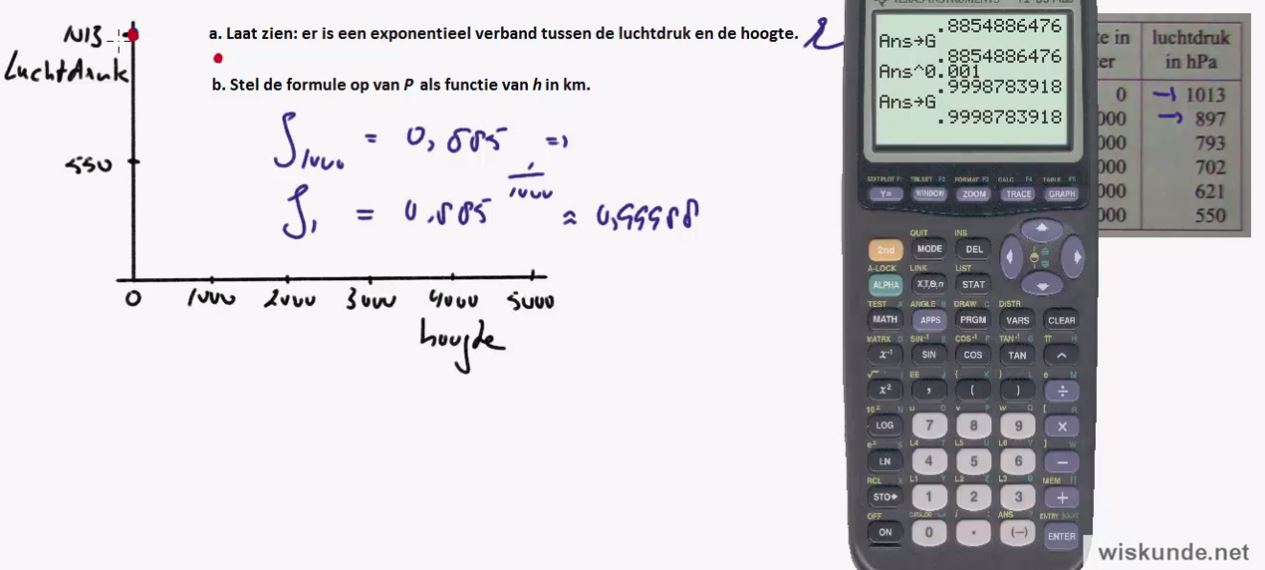 a. Laat zien: er is een exponentieel verband tussen de luchtdruk en de hoogte.
b. Stel de formule op van P als functie van h in km.
1013
Luchtdruk
550
0 1000 2000 3000 4000 5000
hoogte
g1000 = 0,885 =>
g1 = 0,885 1/1000 ≈ 0,99988
.8854886476
Ans→G
.8854886476
Ans^0.001
.9998783918
Ans→G
.9998783918
te in luchtdruk
ter in hPa
0 → 1013
000 → 897
000 793
000 702
000 621
000 550
STATPLOT F1 TBLSET F2 FORMAT F3 CALC F4 TABLE F5
Y= WINDOW ZOOM TRACE GRAPH
QUIT INS
2nd MODE DEL
A-LOCK LINK LIST
ALPHA X,T,θ,n STAT
TEST A ANGLE B DRAW C DISTR
MATH APPS PRGM VARS CLEAR
MATRX D SIN⁻¹ E COS⁻¹ F TAN⁻¹ G π H
x⁻¹ SIN COS TAN ^
√ I EE J { K } L e M
x² , ( ) ÷
10ˣ N u O v P w Q [ R
LOG 7 8 9 ×
eˣ S L4 T L5 U L6 V ] W
LN 4 5 6 −
RCL X L1 Y L2 Z L3 θ MEM "
STO▸ 1 2 3 +
OFF CATALOG i : ANS ? ENTRY SOLVE
ON 0 . (−) ENTER
wiskunde.net